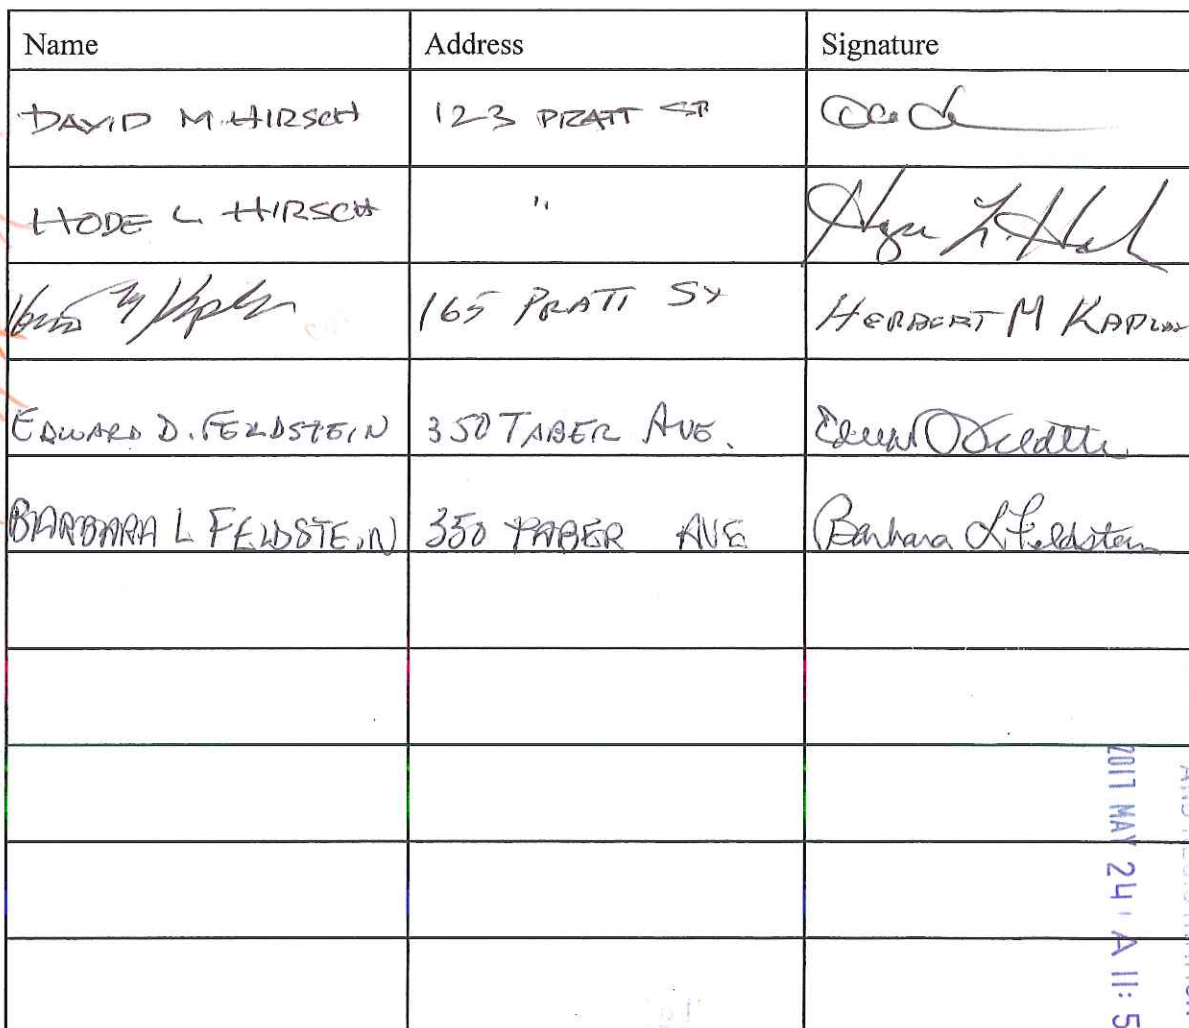 Name Address Signature
DAVID M HIRSCH 123 PRATT ST
HODE L HIRSCH "
165 PRATT ST HERBERT M KAPLAN
EDWARD D. FELDSTEIN 350 TABER AVE.
BARBARA L FELDSTEIN 350 TABER AVE Barbara L Feldstein
2017 MAY 24 A 11: 5